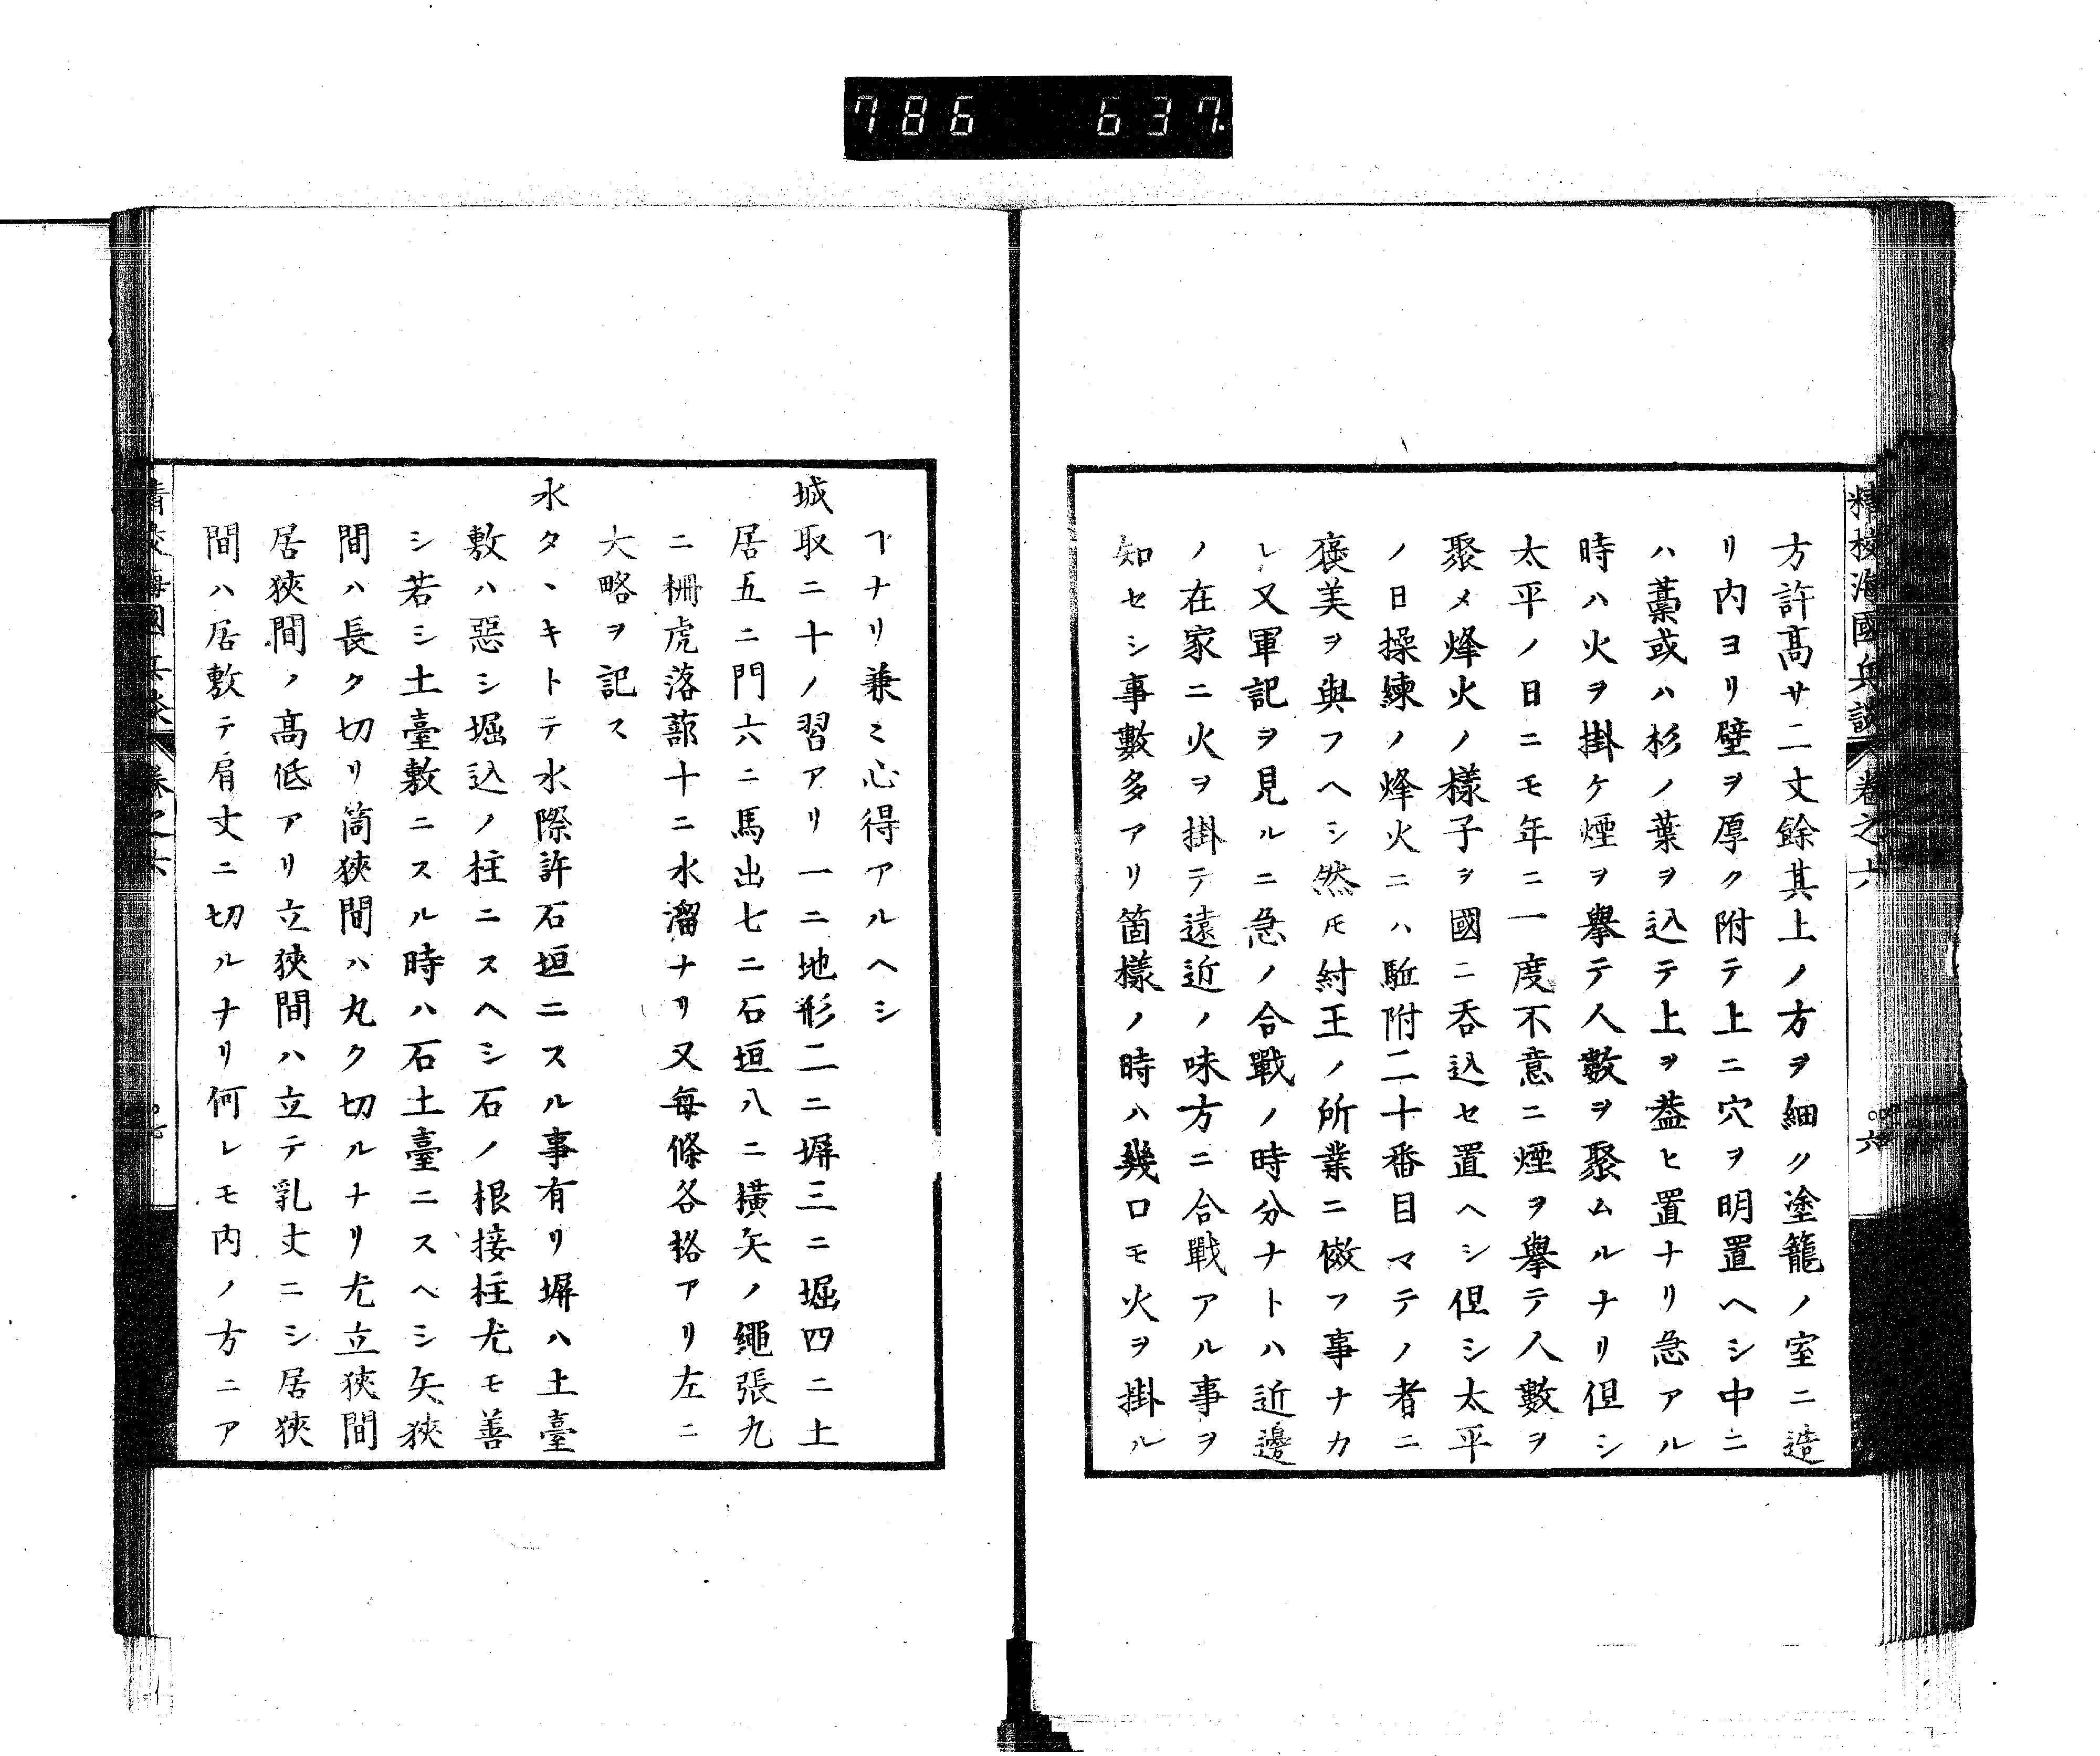 786 637.
精校海國兵談 卷之六
六
方許髙サ二丈餘其上ノ方ヲ細ク塗籠ノ室ニ造
リ内ヨリ壁ヲ厚ク附テ上ニ穴ヲ明置ヘシ中ニ
ハ藁或ハ杉ノ葉ヲ込テ上ヲ葢ヒ置ナリ急アル
時ハ火ヲ掛ケ煙ヲ擧テ人數ヲ聚ムルナリ但シ
太平ノ日ニモ年ニ一度不意ニ煙ヲ擧テ人數ヲ
聚メ烽火ノ樣子ヲ國ニ呑込セ置ヘシ但シ太平
ノ日操練ノ烽火ニハ駈附二十番目マテノ者ニ
褒美ヲ與フヘシ然𪜈紂王ノ所業ニ倣フ事ナカ
レ又軍記ヲ見ルニ急ノ合戰ノ時分ナトハ近邊
ノ在家ニ火ヲ掛テ遠近ノ味方ニ合戰アル事ヲ
知セシ事數多アリ箇樣ノ時ハ幾口モ火ヲ掛ル
ヿナリ兼〻心得アルヘシ
城取ニ十ノ習アリ一ニ地形二ニ塀三ニ堀四ニ土
居五ニ門六ニ馬出七ニ石垣八ニ横矢ノ繩張九
ニ柵虎落蔀十ニ水溜ナリ又毎條各格アリ左ニ
大略ヲ記ス
水タヽキトテ水際許石垣ニスル事有リ塀ハ土臺
敷ハ惡シ堀込ノ柱ニスヘシ石ノ根接柱尤モ善
シ若シ土臺敷ニスル時ハ石土臺ニスヘシ矢狹
間ハ長ク切リ筒狹間ハ丸ク切ルナリ尤立狹間
居狹間ノ髙低アリ立狹間ハ立テ乳丈ニシ居狹
間ハ居敷テ肩丈ニ切ルナリ何レモ内ノ方ニア
精校海國兵談 卷之六
七